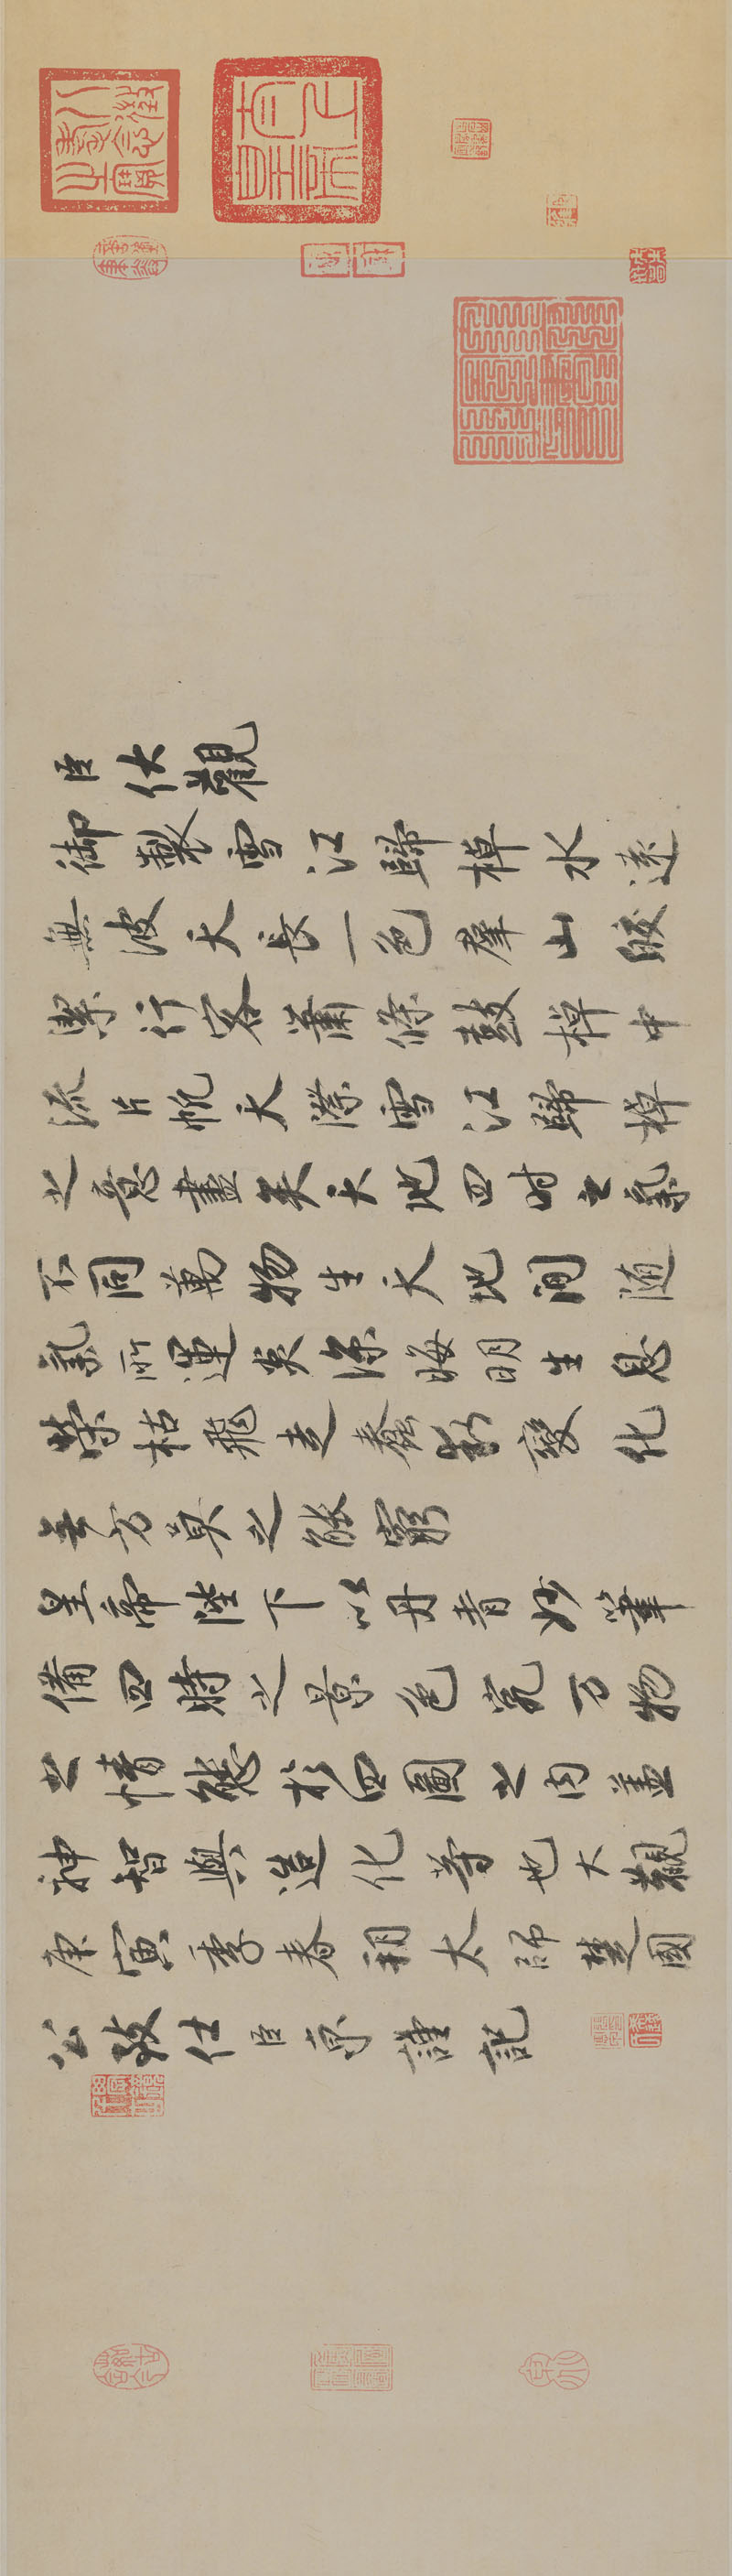 八徵耄念之寶
臣伏觀
御製雪江歸棹水遠
無波天長一色群山皎
潔行客蕭條鼓棹中
流片帆天際雪江歸棹
之意盡矣天地四时之氣
不同萬物生天地間随
氣所運炎涼晦明生息
榮枯飛走蠢動變化
无方莫之能窮
皇帝陛下以丹青妙筆
備四時之景色究万物
之情態於四圖之内蓋
神智與造化等也大觀
庚寅季春朔太師楚國
公致仕臣京謹記